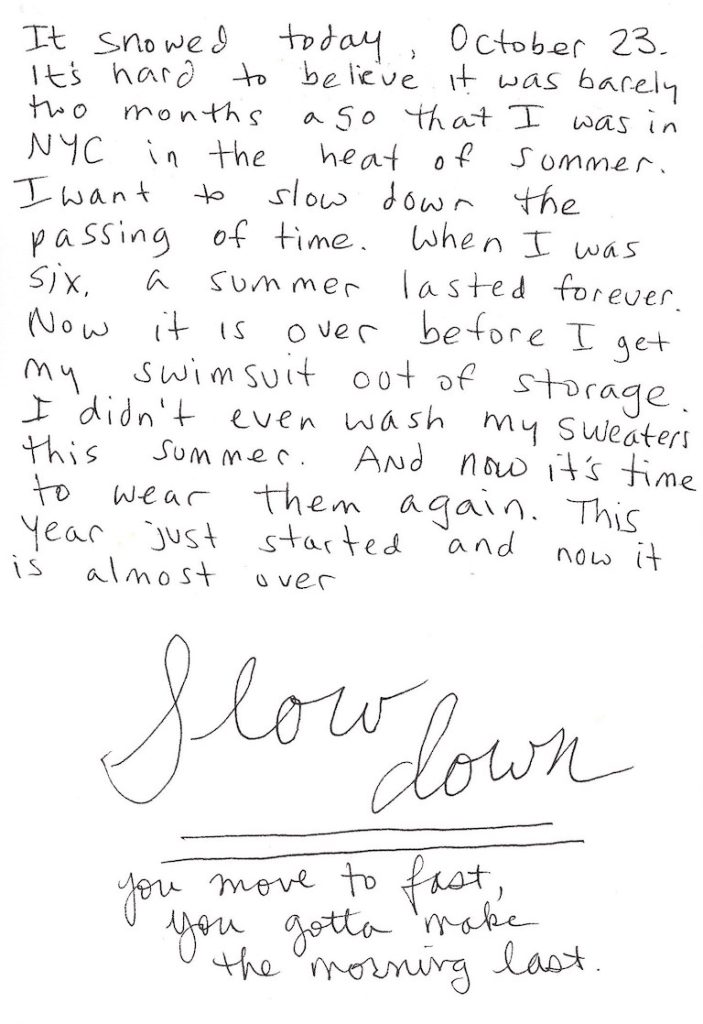 It snowed today, October 23.
It's hard to believe it was barely
two months ago that I was in
NYC in the heat of summer.
I want to slow down the
passing of time. When I was
six, a summer lasted forever.
Now it is over before I get
my swimsuit out of storage.
I didn't even wash my sweaters
this summer. And now it's time
to wear them again. This
year just started and now it
is almost over
Slow
down
you move to fast,
you gotta make
the morning last.